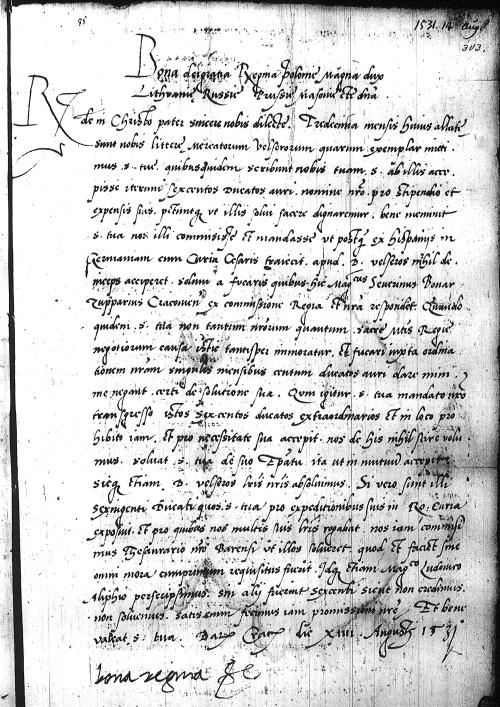 95
1531. 14 Aug
303.
Bona dei gratia Regina Polonie Magna dux
Lithvanie Russie Prussie Masovie etc dna.
Rde in Christo pater sincere nobis dilecte. Tredecima mensis huius allate
sunt nobis littere mercatorum velserorum quarum exemplar mitti
mus. s. tue quibusquidem scribunt nobis tuam. s. ab illis acce
pisse iterum sexcentos Ducatos auri. nomine nro. pro stipendio et
expensis suis. petuntq vt illis solui facere dignaremur. bene meminit
s. tua nos illi commisisse et mandasse vt postq ex hispaniis in
Germaniam cum Curia Cesaris traiecit. apud. D. velseros nihil de
inceps acciperet. solum a fucaris quibus hic Mag cus Severinus Bonar
Zupparius Cracovien ex commissione Regia et nra respondet. Quando
quidem. s. tua non tantum nrorum quantum. sacre Mtis Regie
negotiorum causa istic tantisper immoratur. et fucari iuxta ordina
tionem nram singulis mensibus centum ducatos auri dare mini
me negant. certi de solutione sua. Cum igitur. s. tua mandato nro
transgresso istos sexcentos ducatos extraordinarios et in loco pro
hibito iam. et pro necessitate sua accepit. nos de his nihil scire volu
mus. soluat. s. tua de suo Epatu ita vt in mutuum accepit
sicq etiam. D. velseros lris nris absoluimus. Si vero sunt illi
sexingenti Ducati quos. s. tua pro expeditionibus suis in Ro. Curia
exposuit. et pro quibus nos multis suis lris rogabat. nos iam commisi
mus Thesaurario nro Barensi vt illos solueret. quod et faciet sine
omni mora cumprimum requisitus fuerit. Idq etiam Mag co Ludovico
Aliphio perscripsimus. sin alij fuerint sexcenti sicut non credimus.
non soluemus. satis enim fecimus iam promissioni nre. Et bene
valeat s. tua. Dat Crac die XIIII. Augusti 1531
bona regina